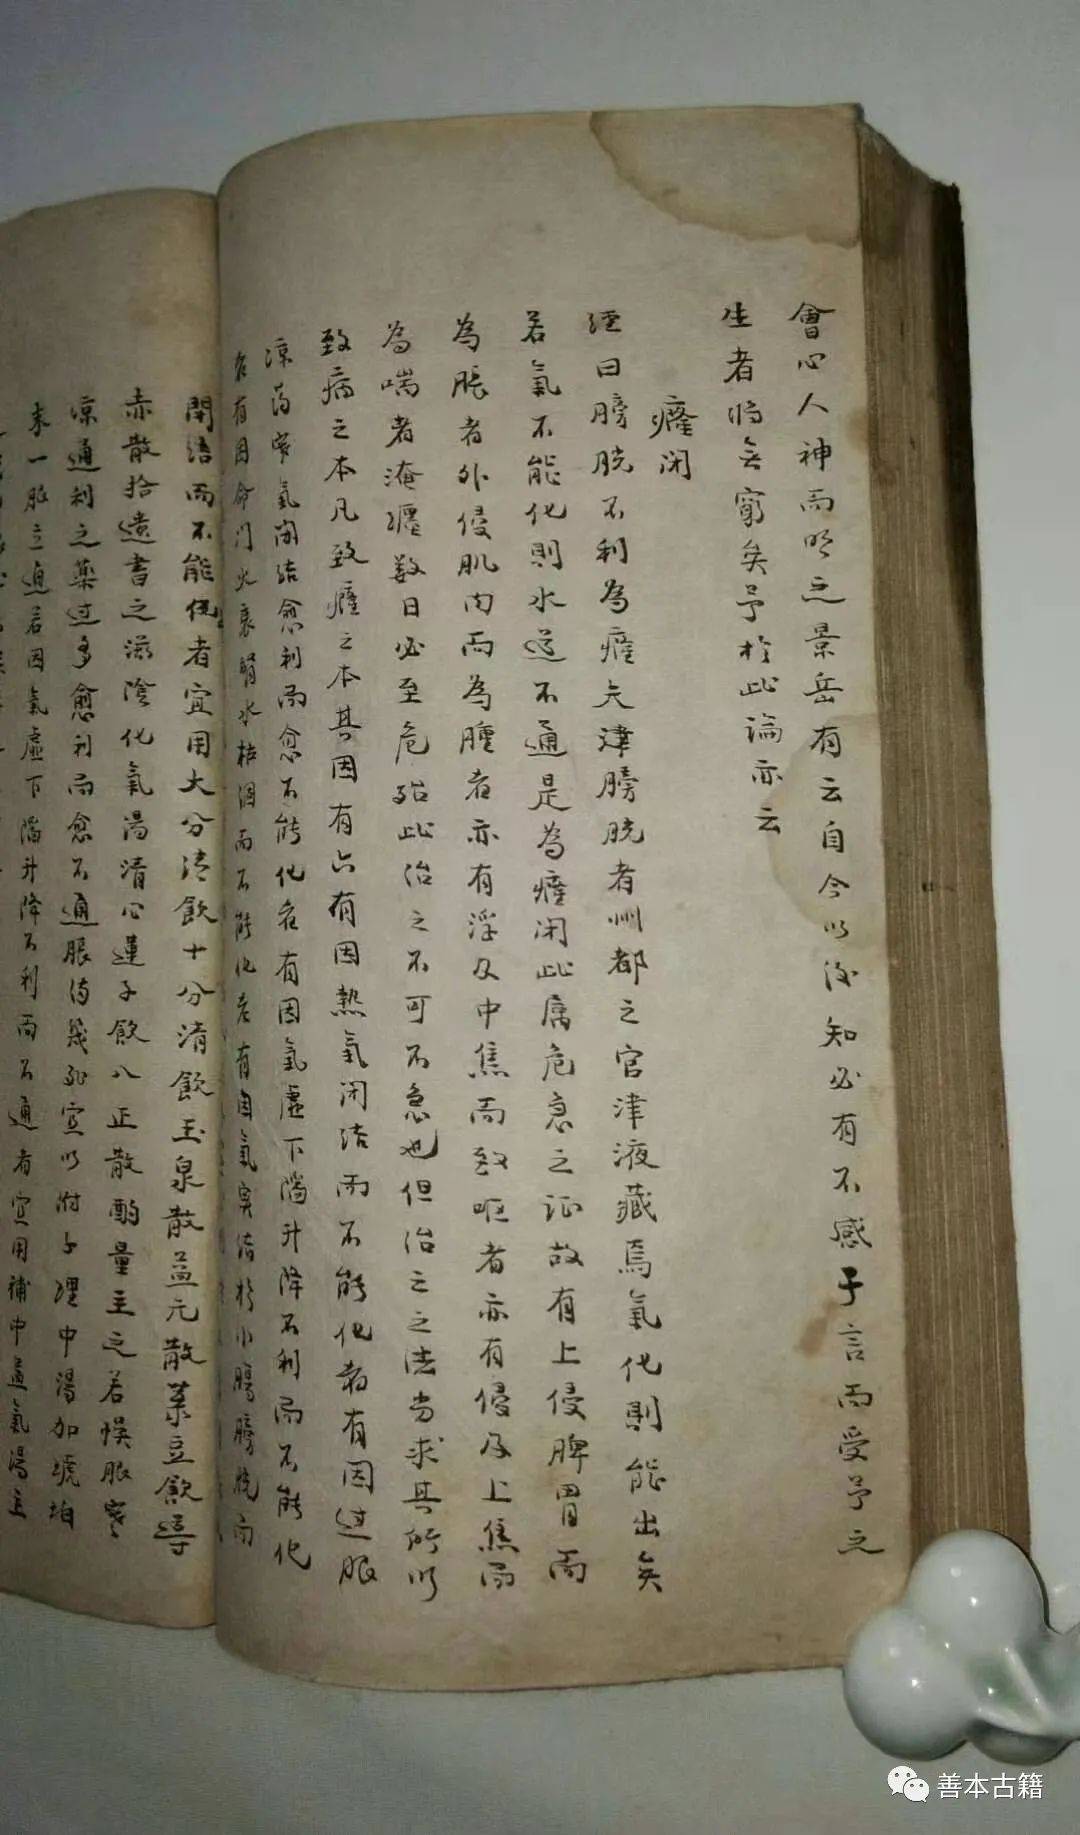 會心人神而明之景岳有云自今以後知必有不感于言而受予之
生者將無窮矣予於此論亦云
癃闭
經曰膀胱不利為癃夫津膀胱者州都之官津液藏焉氣化則能出矣
若氣不能化則水道不通是為癃闭此属危急之证故有上侵脾胃而
為脹者外侵肌肉而為腫者亦有浮及中焦而致呕者亦有侵及上焦而
為喘者淹纏数日必至危殆此治之不可不急也但治之之法当求其所以
致病之本凡致癃之本其因有六有因熱氣闭结而不能化者有因过服
凉药寒氣闭结愈利而愈不能化者有因氣虚下陷升降不利而不能化
者有因命门火衰腎水枯涸而不能化者有因氣实结於小腸膀胱而
閉结而不能便者宜用大分清飲十分清飲玉泉散益元散菉豆飲导
赤散拾遗書之滋陰化氣湯清心蓮子飲八正散酌量主之若悮服寒
凉通利之藥过多愈利而愈不通服待幾死宜以附子理中湯加琥珀
末一服立通若因氣虚下陷升降不利而不通者宜用補中益氣湯主
善本古籍